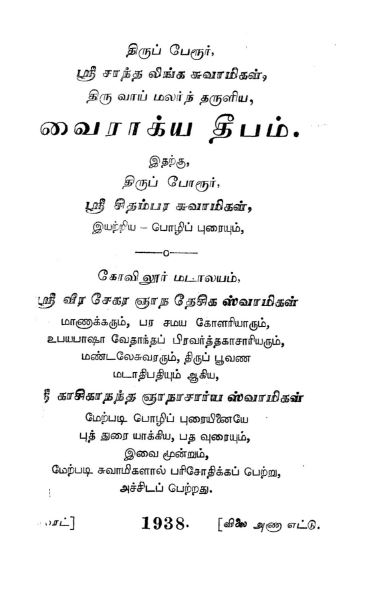 திருப் பேரூர்,
ஸ்ரீ சாந்த லிங்க சுவாமிகள்,
திரு வாய் மலர்ந் தருளிய,
வைராக்ய தீபம்.
இதற்கு,
திருப் போரூர்,
ஸ்ரீ சிதம்பர சுவாமிகள்,
இயற்றிய – பொழிப் புரையும்,
கோவிலூர் மடாலயம்,
ஸ்ரீ வீர சேகர ஞாந தேசிக ஸ்வாமிகள்
மாணக்கரும், பர சமய கோளரியாரும்,
உபயபாஷா வேதாந்தப் பிரவர்த்தகாசாரியரும்,
மண்டலேசுவரரும், திருப் பூவண
மடாதிபதியும் ஆகிய,
ஸ்ரீ காசிகாநந்த ஞாநாசார்ய ஸ்வாமிகள்
மேற்படி பொழிப் புரையினையே
புத் துரை யாக்கிய, பத வுரையும்,
இவை மூன்றும்,
மேற்படி சுவாமிகளால் பரிசோதிக்கப் பெற்று,
அச்சிடப் பெற்றது.
1938. [விலை அணா எட்டு.